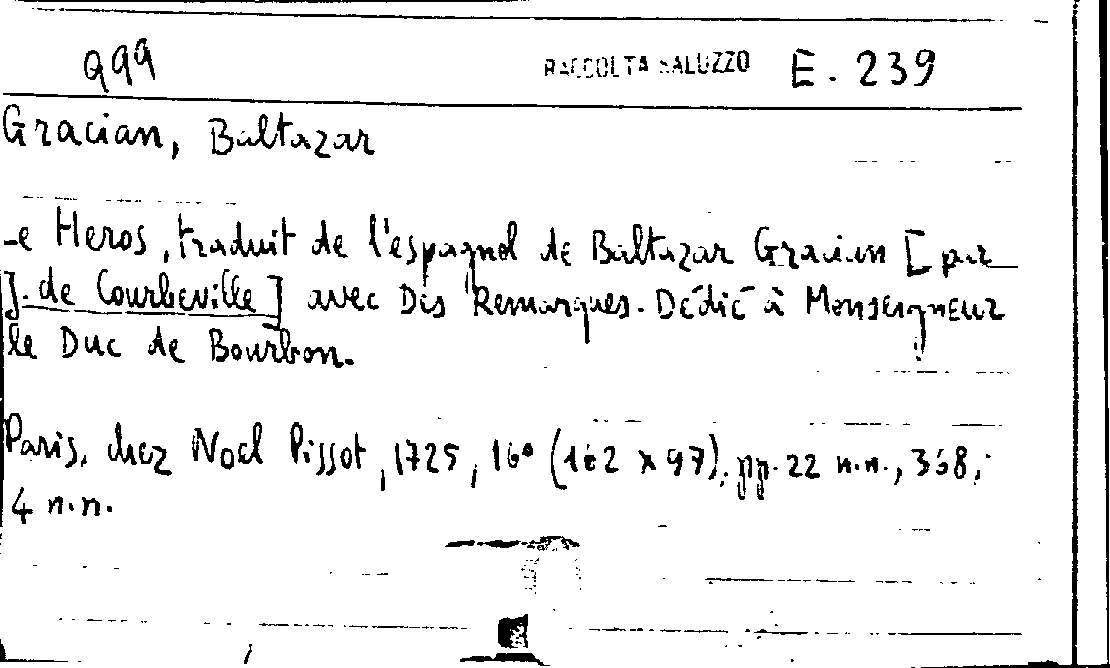 999 RACCOLTA SALUZZO E. 239
Gracian, Baltazar
Le Heros, traduit de l'espagnol de Baltazar Gracian [par
J. de Courbeville] avec Des Remarques. Dédié à Monseigneur
le Duc de Bourbon.
Paris, chez Noel Pissot, 1725, 16° (162 x 97), pp. 22 n.n., 368,
4 n.n.